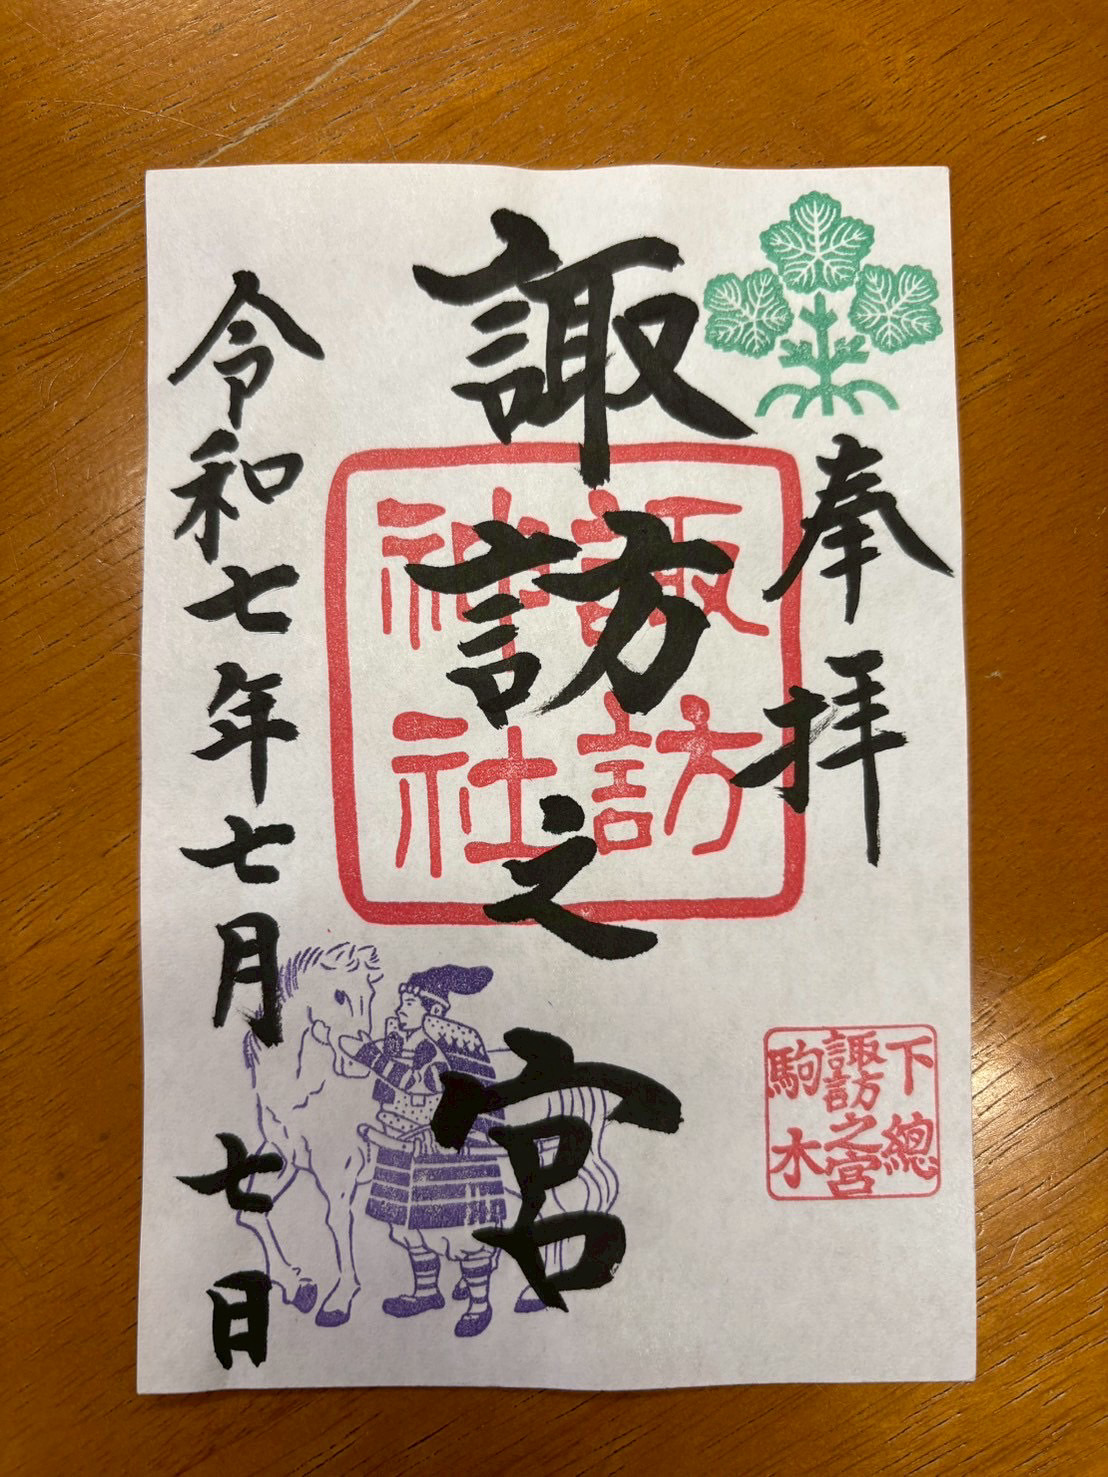 奉拝
諏訪之宮
諏訪
神社
令和七年七月七日
下總
諏訪之宮
駒木